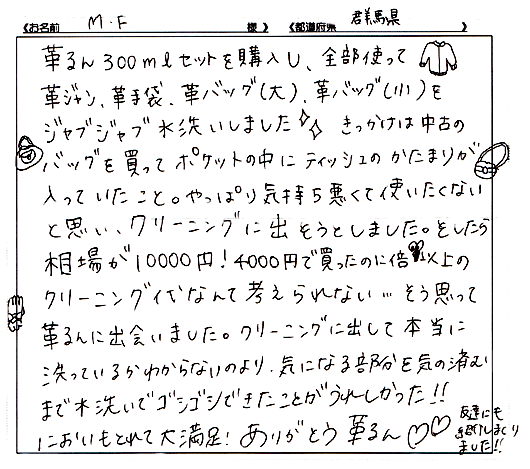 《お名前 M.F 様》《都道府県 群馬県 》
革るん300mlセットを購入し、全部使って
革ジャン、革手袋、革バッグ(大)、革バッグ(小)を
ジャブジャブ水洗いしました きっかけは中古の
バッグを買ってポケットの中にティッシュのかたまりが
入っていたこと。やっぱり気持ち悪くて使いたくない
と思い、クリーニングに出そうとしました。そしたら
相場が10000円!4000円で買ったのに倍以上の
クリーニング代なんて考えられない…そう思って
革るんに出会いました。クリーニングに出して本当に
洗っているかわからないのより、気になる部分を気の済む
まで水洗いでゴシゴシできたことがうれしかった!!
においもとれて大満足!ありがとう革るん♡♡
友達にも
紹介しまくり
ました!!